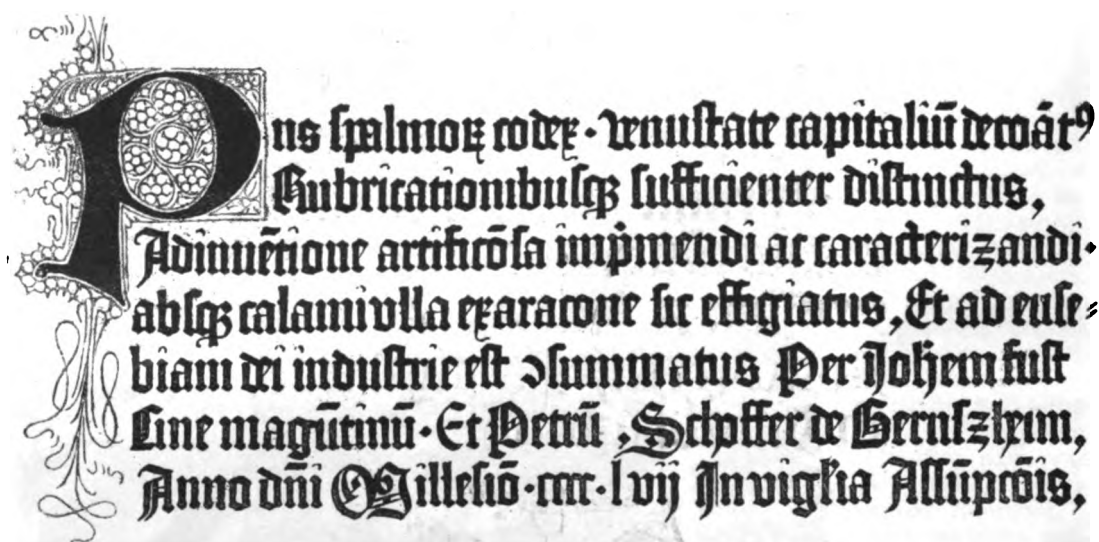 Pñs ſpalmoꝝ codex · venuſtate capitaliū decoāt⁹
Rubricationibuſqꝫ ſufficienter diſtinctus,
Adinuētione artificōſa imp̄mendi ac caracterizandi·
abſqꝫ calami vlla exaracone ſic effigiatus, Et ad euſe⸗
biam dei induſtrie eſt ↄſummatus Per Joh̄em fuſt
Ciue magūtinū· Et Petrū ,Schoffer de Gernſzheim,
Anno dn̄i Milleſio᷒ ·cccc· lvij In vigl̄ia Aſſūpcōis,